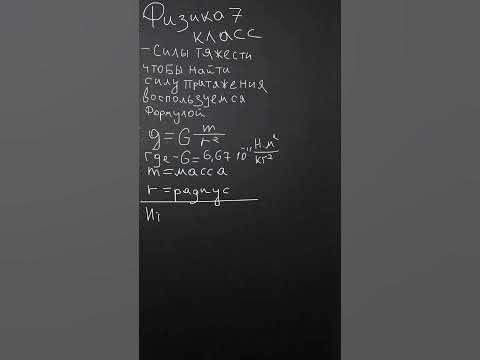 Физика 7
класс
- Силы тяжести
чтобы найти
силу притяжения
воспользуемся
Формулой
g = G m/r²
где - G = 6,67 10⁻¹¹ Н.м²/кг²
m = масса
r = радиус
Ит